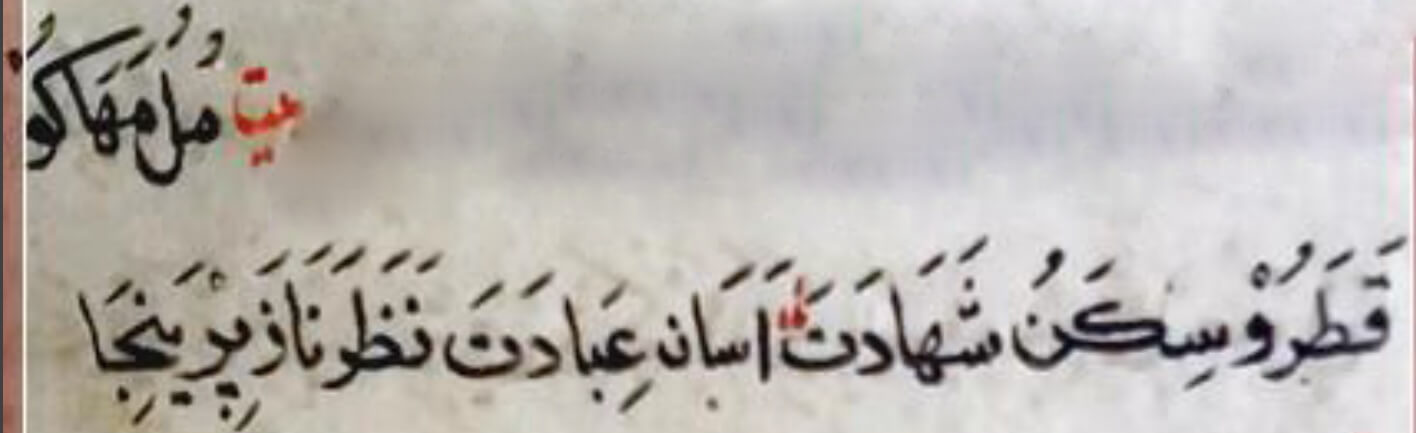 بيت مُلُ مَهَاكُوُ
قَطَرُوْ سِكَنُ شَهَادَتَ اَسَان عِبَادَتَ نَظَرَ نَازَ پِرْيَنِجَا